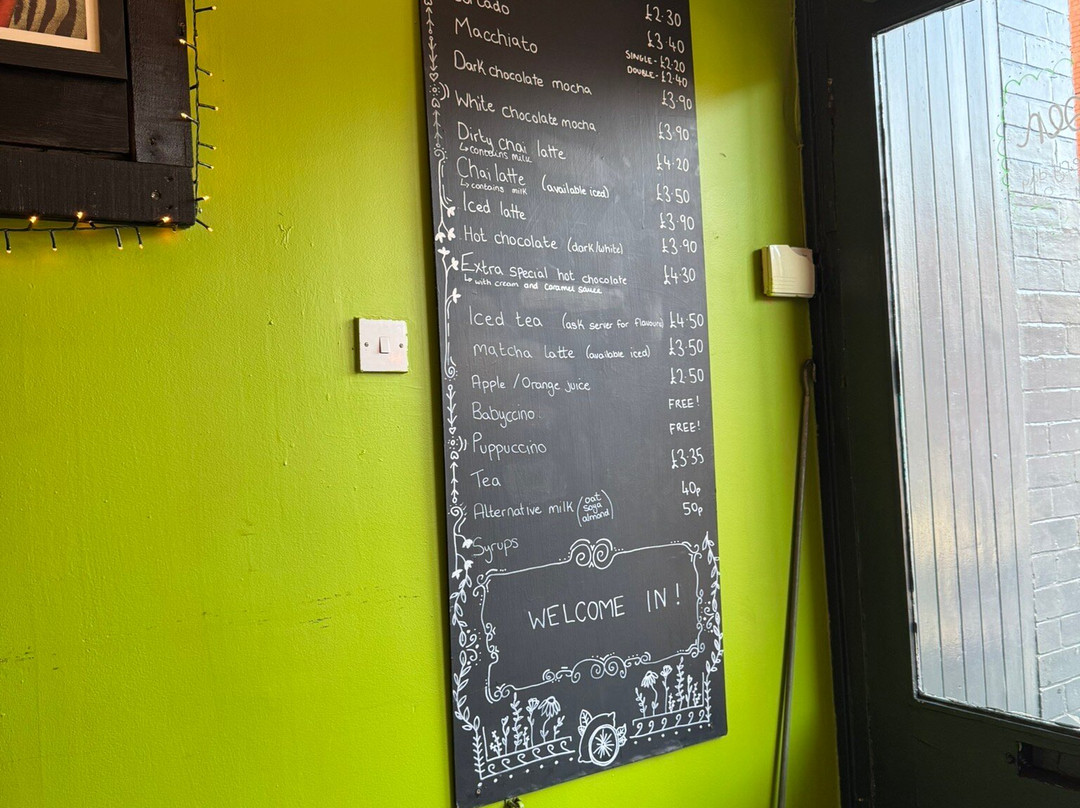 £2.30
ortado £3.40
Macchiato SINGLE - £2.20
DOUBLE - £2.40
Dark chocolate mocha £3.90
White chocolate mocha £3.90
Dirty chai latte £4.20
↳ contains milk
Chai latte (available iced) £3.50
↳ contains milk
Iced latte £3.90
Hot chocolate (dark/white) £3.90
Extra special hot chocolate £4.30
↳ with cream and caramel sauce
Iced tea (ask server for flavours) £4.50
matcha latte (available iced) £3.50
Apple / Orange juice £2.50
Babyccino FREE!
Puppuccino FREE!
Tea £3.35
Alternative milk (oat soya almond) 40p
Syrups 50p
WELCOME IN!